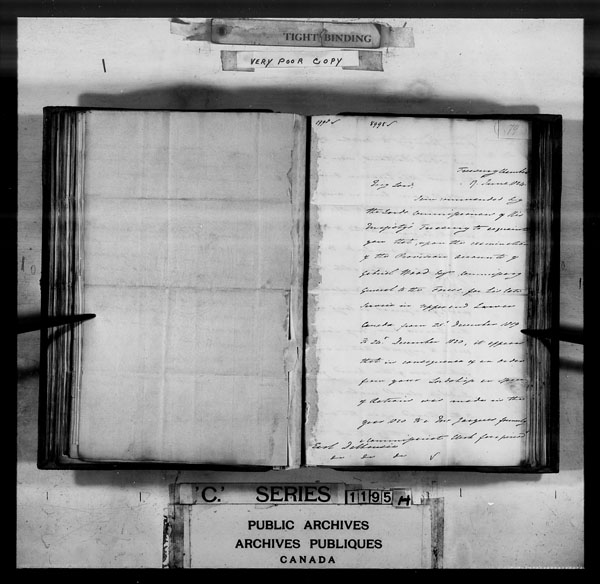 TIGHT BINDING
VERY POOR COPY
Treasury Chambers
7 June 182
My Lord,
I am commanded by
the Lords Commissioners of His
Majesty's Treasury to
you that, upon the examination
of the Provision accounts of
Gabriel Wood Esqr Commissary
General to the Forces for his late
Service in Upper and Lower
Canada from 25 December 1819
to 24 December 1820, it appears
that in consequence of an order
from your Lordship an
of was made in the
year 1820 to Mr Jacques
a Commissariat Clerk for
Earl Dalhousie
'C.' SERIES 1195 H
PUBLIC ARCHIVES
ARCHIVES PUBLIQUES
CANADA